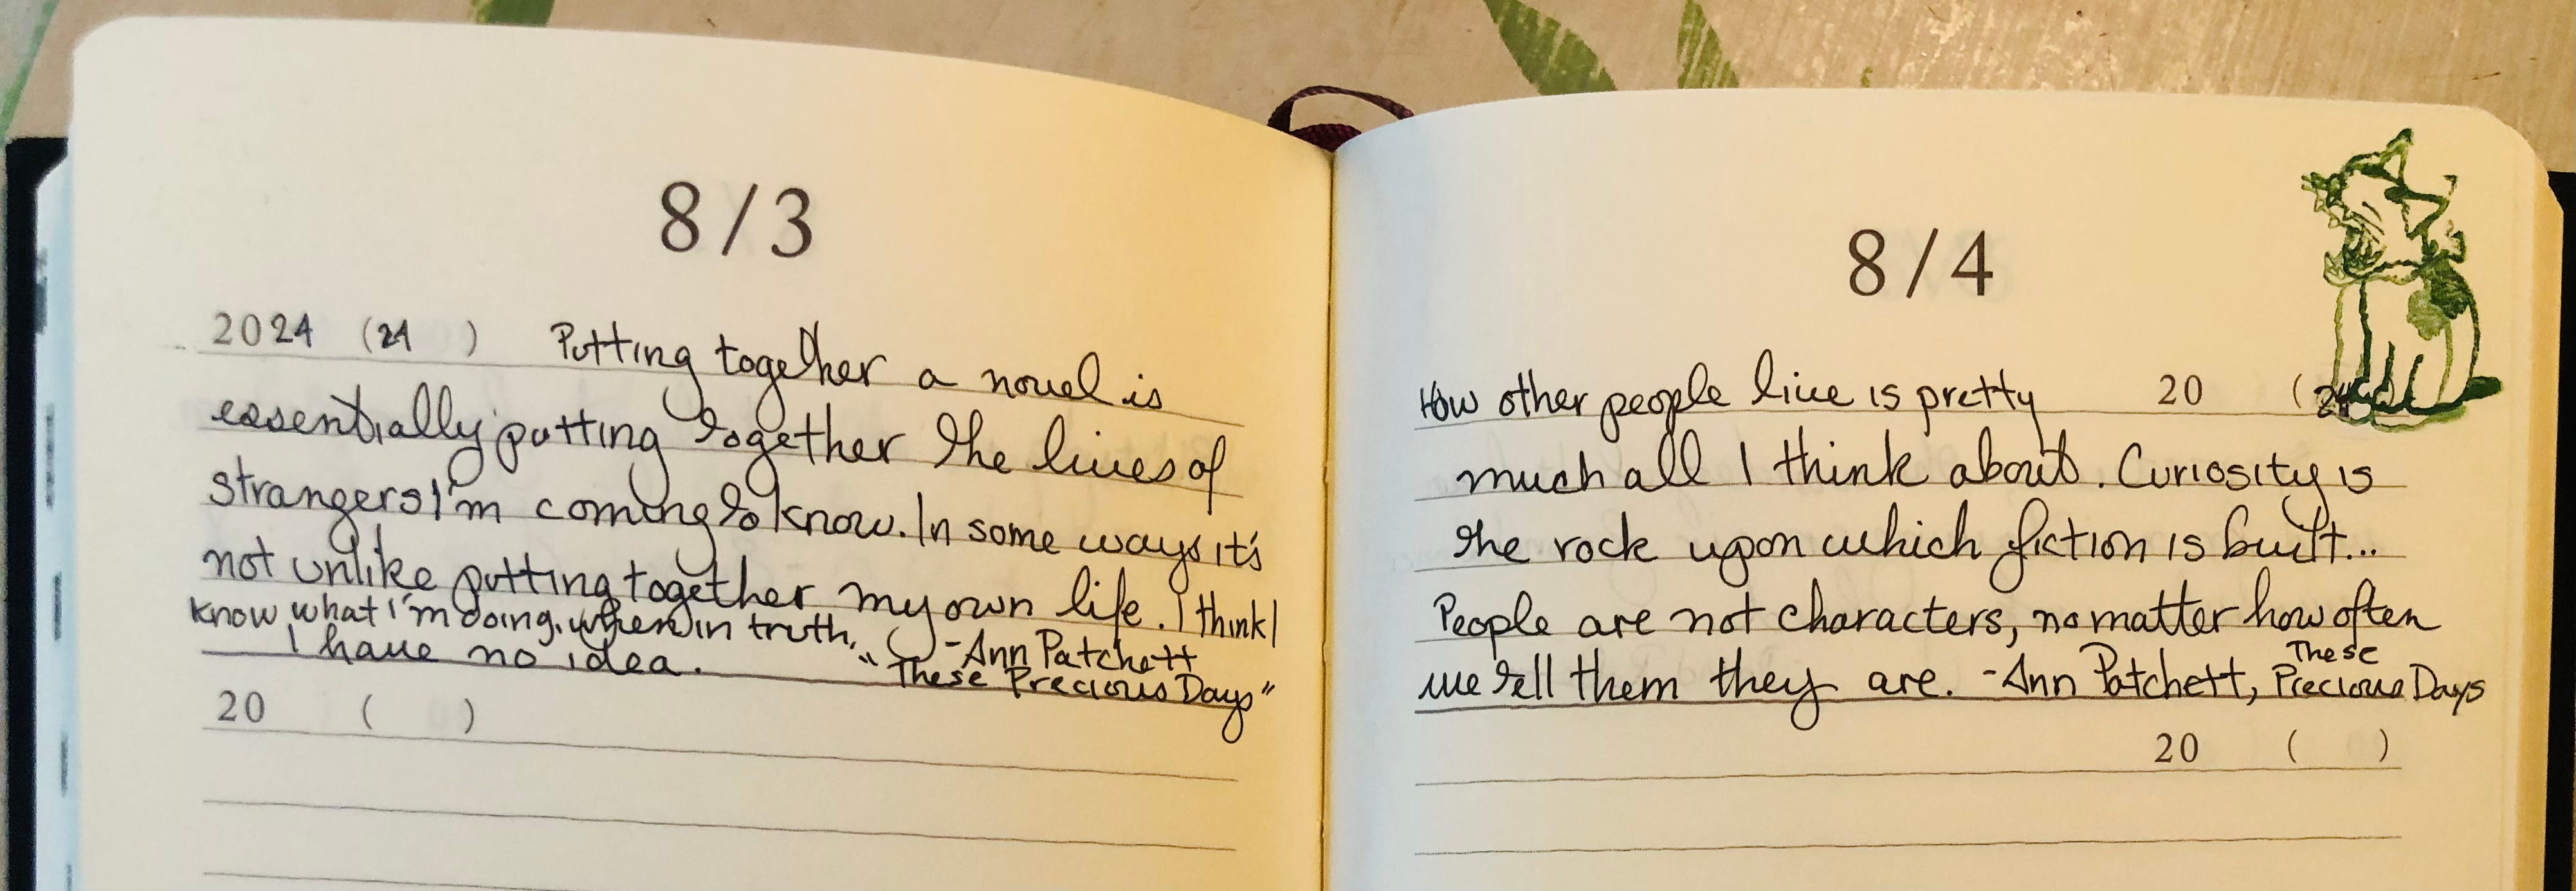 8/3
2024 (24 ) Putting together a novel is
essentially putting together the lives of
strangers I'm coming to know. In some ways it's
not unlike putting together my own life. I think I
know what I'm doing, when in truth,
I have no idea. -Ann Patchett
"These Precious Days"
20 ( )
8/4
How other people live is pretty 20 (24
much all I think about. Curiosity is
the rock upon which fiction is built...
People are not characters, no matter how often
we tell them they are. -Ann Patchett, These Precious Days
20 ( )